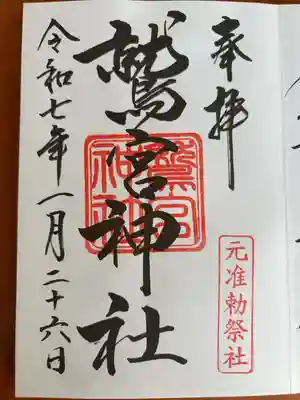 奉拝
元准勅祭社
鷲宮神社
鷲宮神社
令和七年一月二十六日